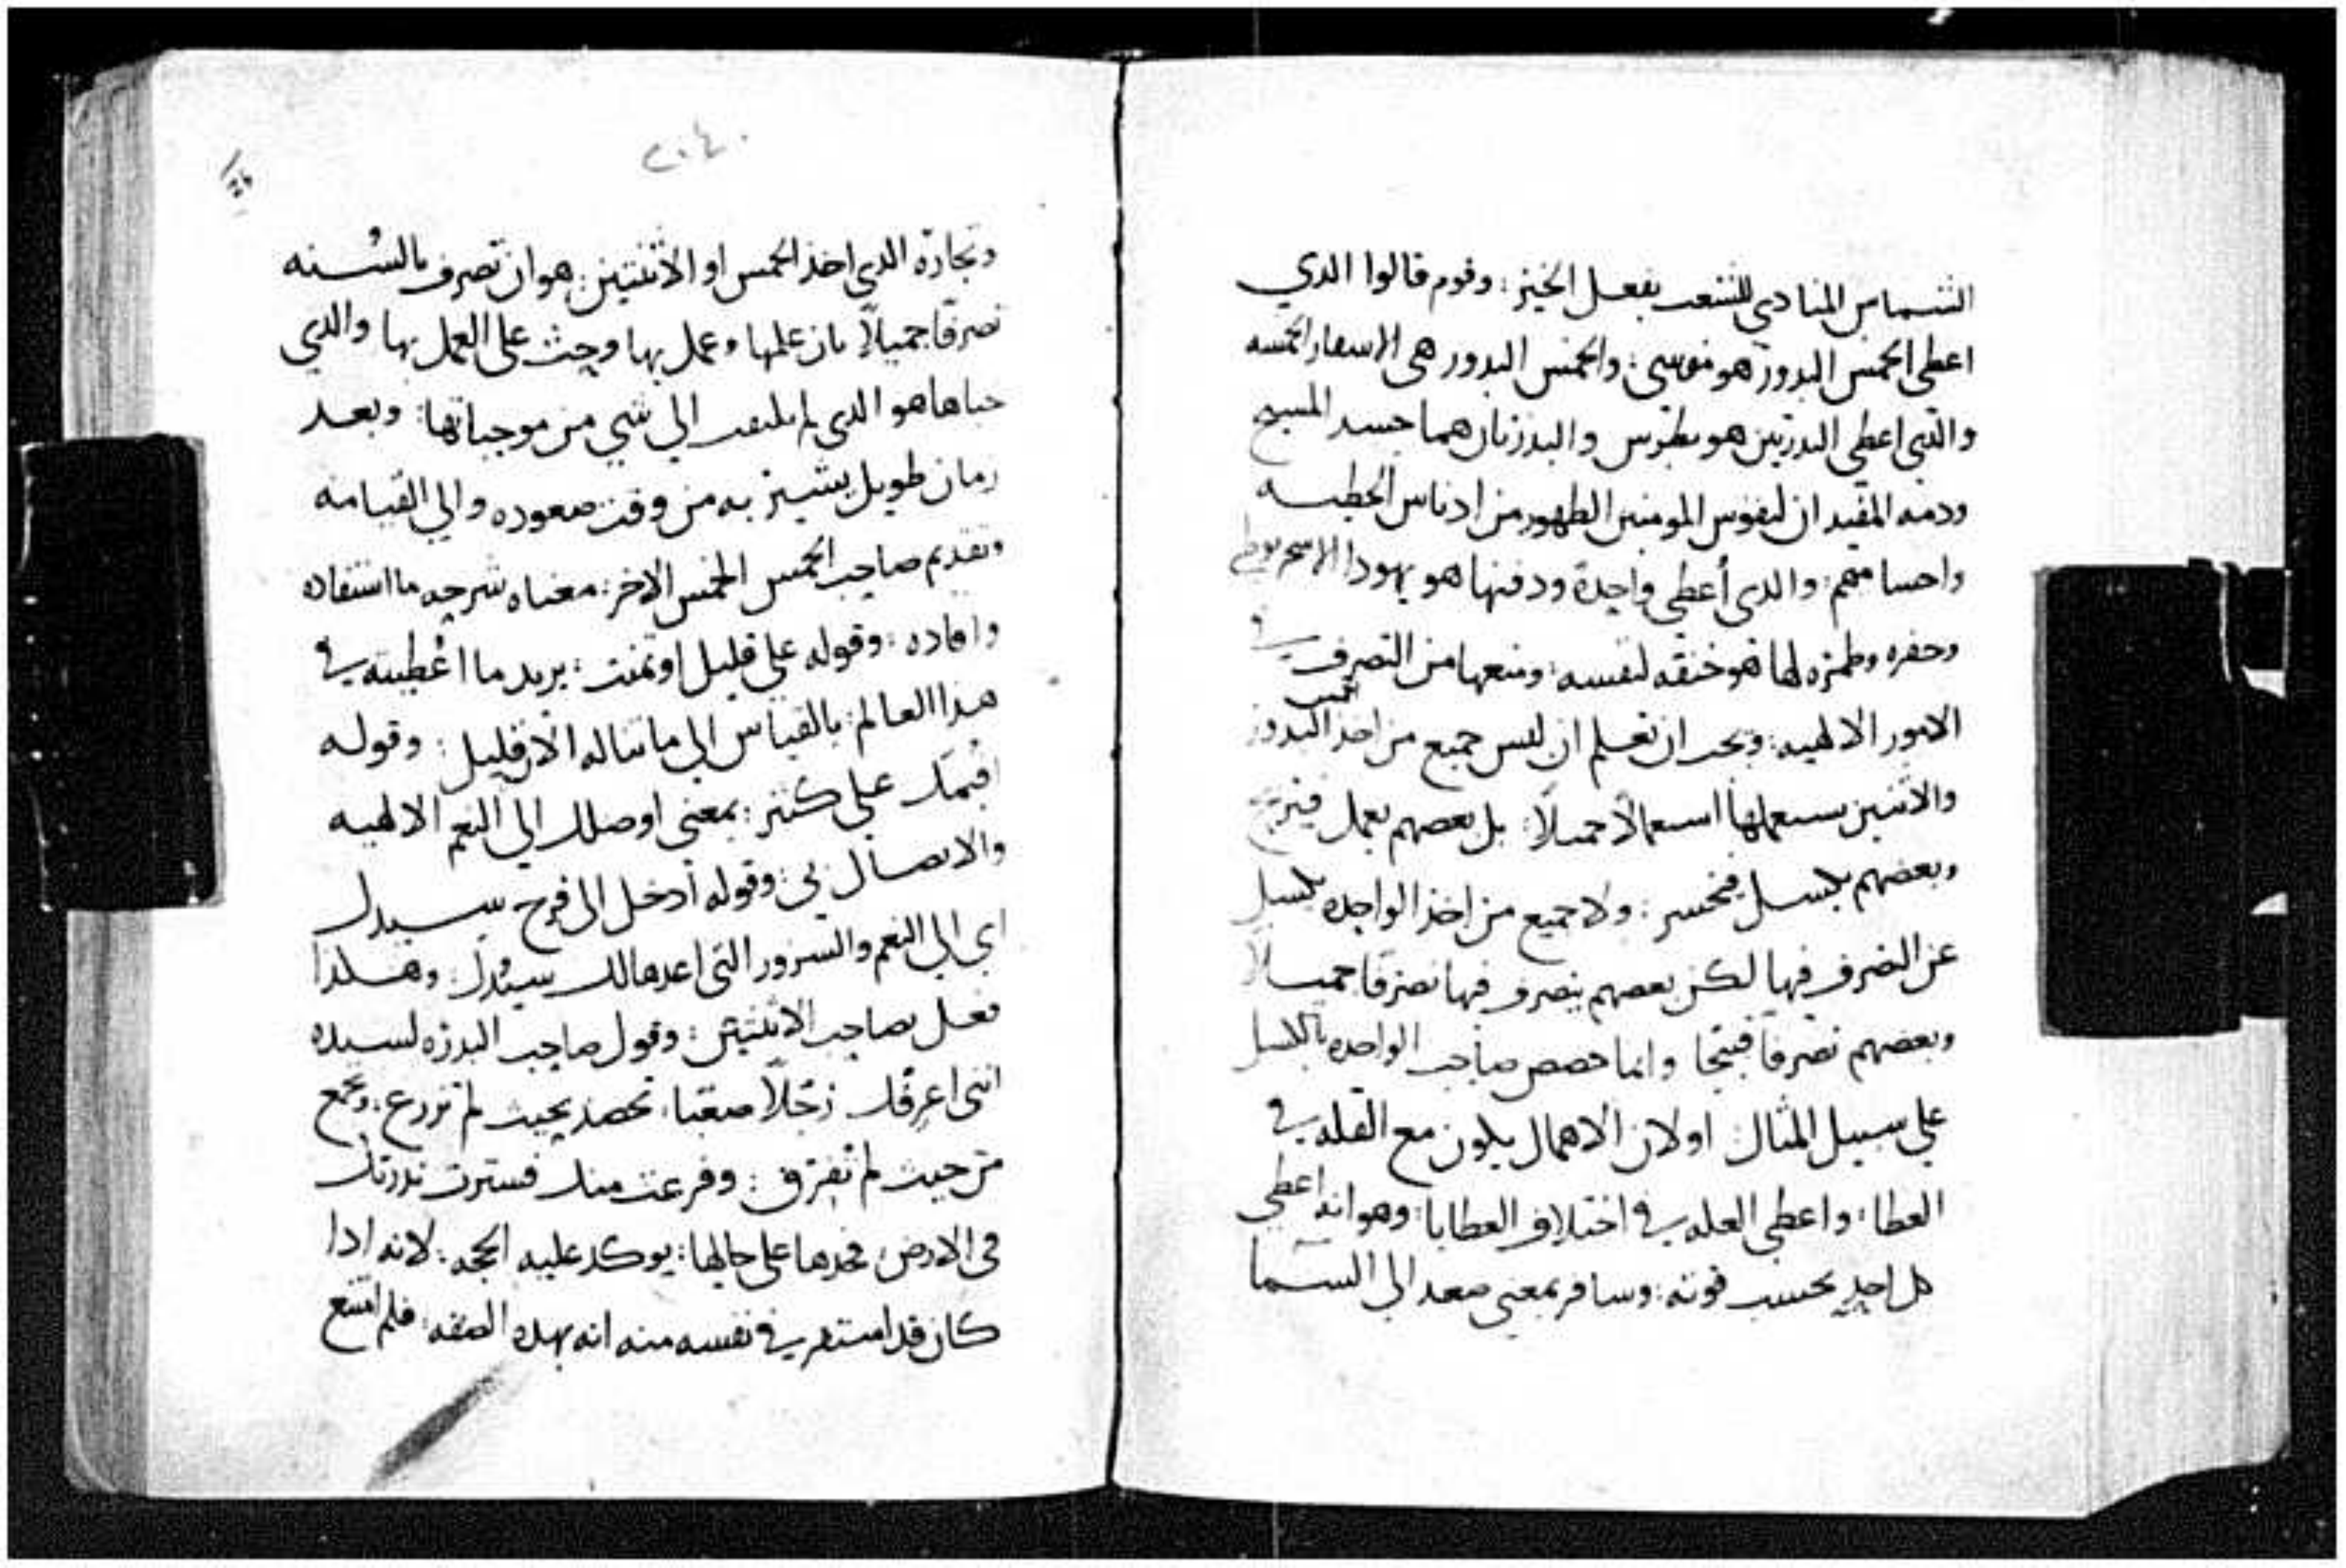 الشماس المنادي للشعب بفعل الخير: وقوم قالوا الدي
اعطي الخمس البدور هو موسي: والخمس البدور هي الاسفار الخمسه
والدي اعطي البدرتين هو بطرس والبدرتان هما جسد المسيح
ودمه المفيدان لنفوس المومنين الطهور من ادناس الخطيه
واحسامهم: والدي أعطي واحدة ودفنها هو يهودا الاسخريوطي
وحفره وطمره لها هو خنقه لنفسه: ومنعها من التصرف في
الامور الالهيه: ويجب ان تعلم ان ليس جميع من اخد الخمس البدور
والاثنتين يستعملها استعمالاً جميلاً: بل بعضهم يعمل فيربح
وبعضهم يكسل فيخسر: ولا جميع من اخد الواحده يكسل
عن التصرف فيها لكن بعضهم يتصرف فيها تصرفا جميلاً
وبعضهم تصرفاً قبيحا وانما خصص صاحب الواحده بالكسل
علي سبيل المثال او لان الاهمال يكون مع القله في
العطا: واعطي العله في اختلاف العطايا: وهو انه اعطي
كل احد بحسب قوته: وسافر بمعني صعد الي السما
٢٠٤٠
وتجارة الدي اخذ الخمس او الاثنتين: هو ان تصرف بالسُنه
تصرفا جميلاً بان علمها وعمل بها وحث علي العمل بها والدي
خباها هو الدي لم يلتفت الي شي من موجباتها: وبعد
زمان طويل يشير به من وقت صعوده والي القيامه
وتقديم صاحب الخمس الخمس الاخر: معناه شرحه ما استفاده
وافاده: وقوله علي قليل اوتمنت: يريد ما اعُطيته في
هدا العالم: بالقياس الي ما تناله الان قليل: وقوله
اقيمك علي كثير: بمعني اوصلك الي النعم الالهيه
والاتصال بي: وقوله أدخل الي فرح سيدك
اي الي النعم والسرور التي اعدها لك سيدُك: وهكدا
فعل بصاحب الاثنتين: وقول صاحب البدره لسيده
انني اعرفك رجُلاً صعبًا: تحصد بحيث لم تزرع: وتجمع
من حيث لم تفرق: وفزعت منك فسترت بدرتك
في الارض فخدها علي حالها: يوكد عليه الحجه: لانه ادا
كان قد استقر في نفسه منه انه بهده الصفه: فلم امتنع